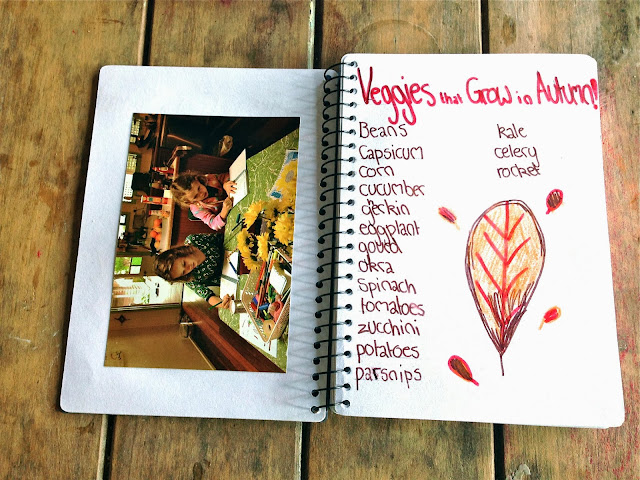 Veggies that Grow in Autumn!
Beans
Capsicum
corn
cucumber
gerkin
eggplant
gourd
okra
Spinach
tomatoes
zucchini
potatoes
parsnips
kale
celery
rocket